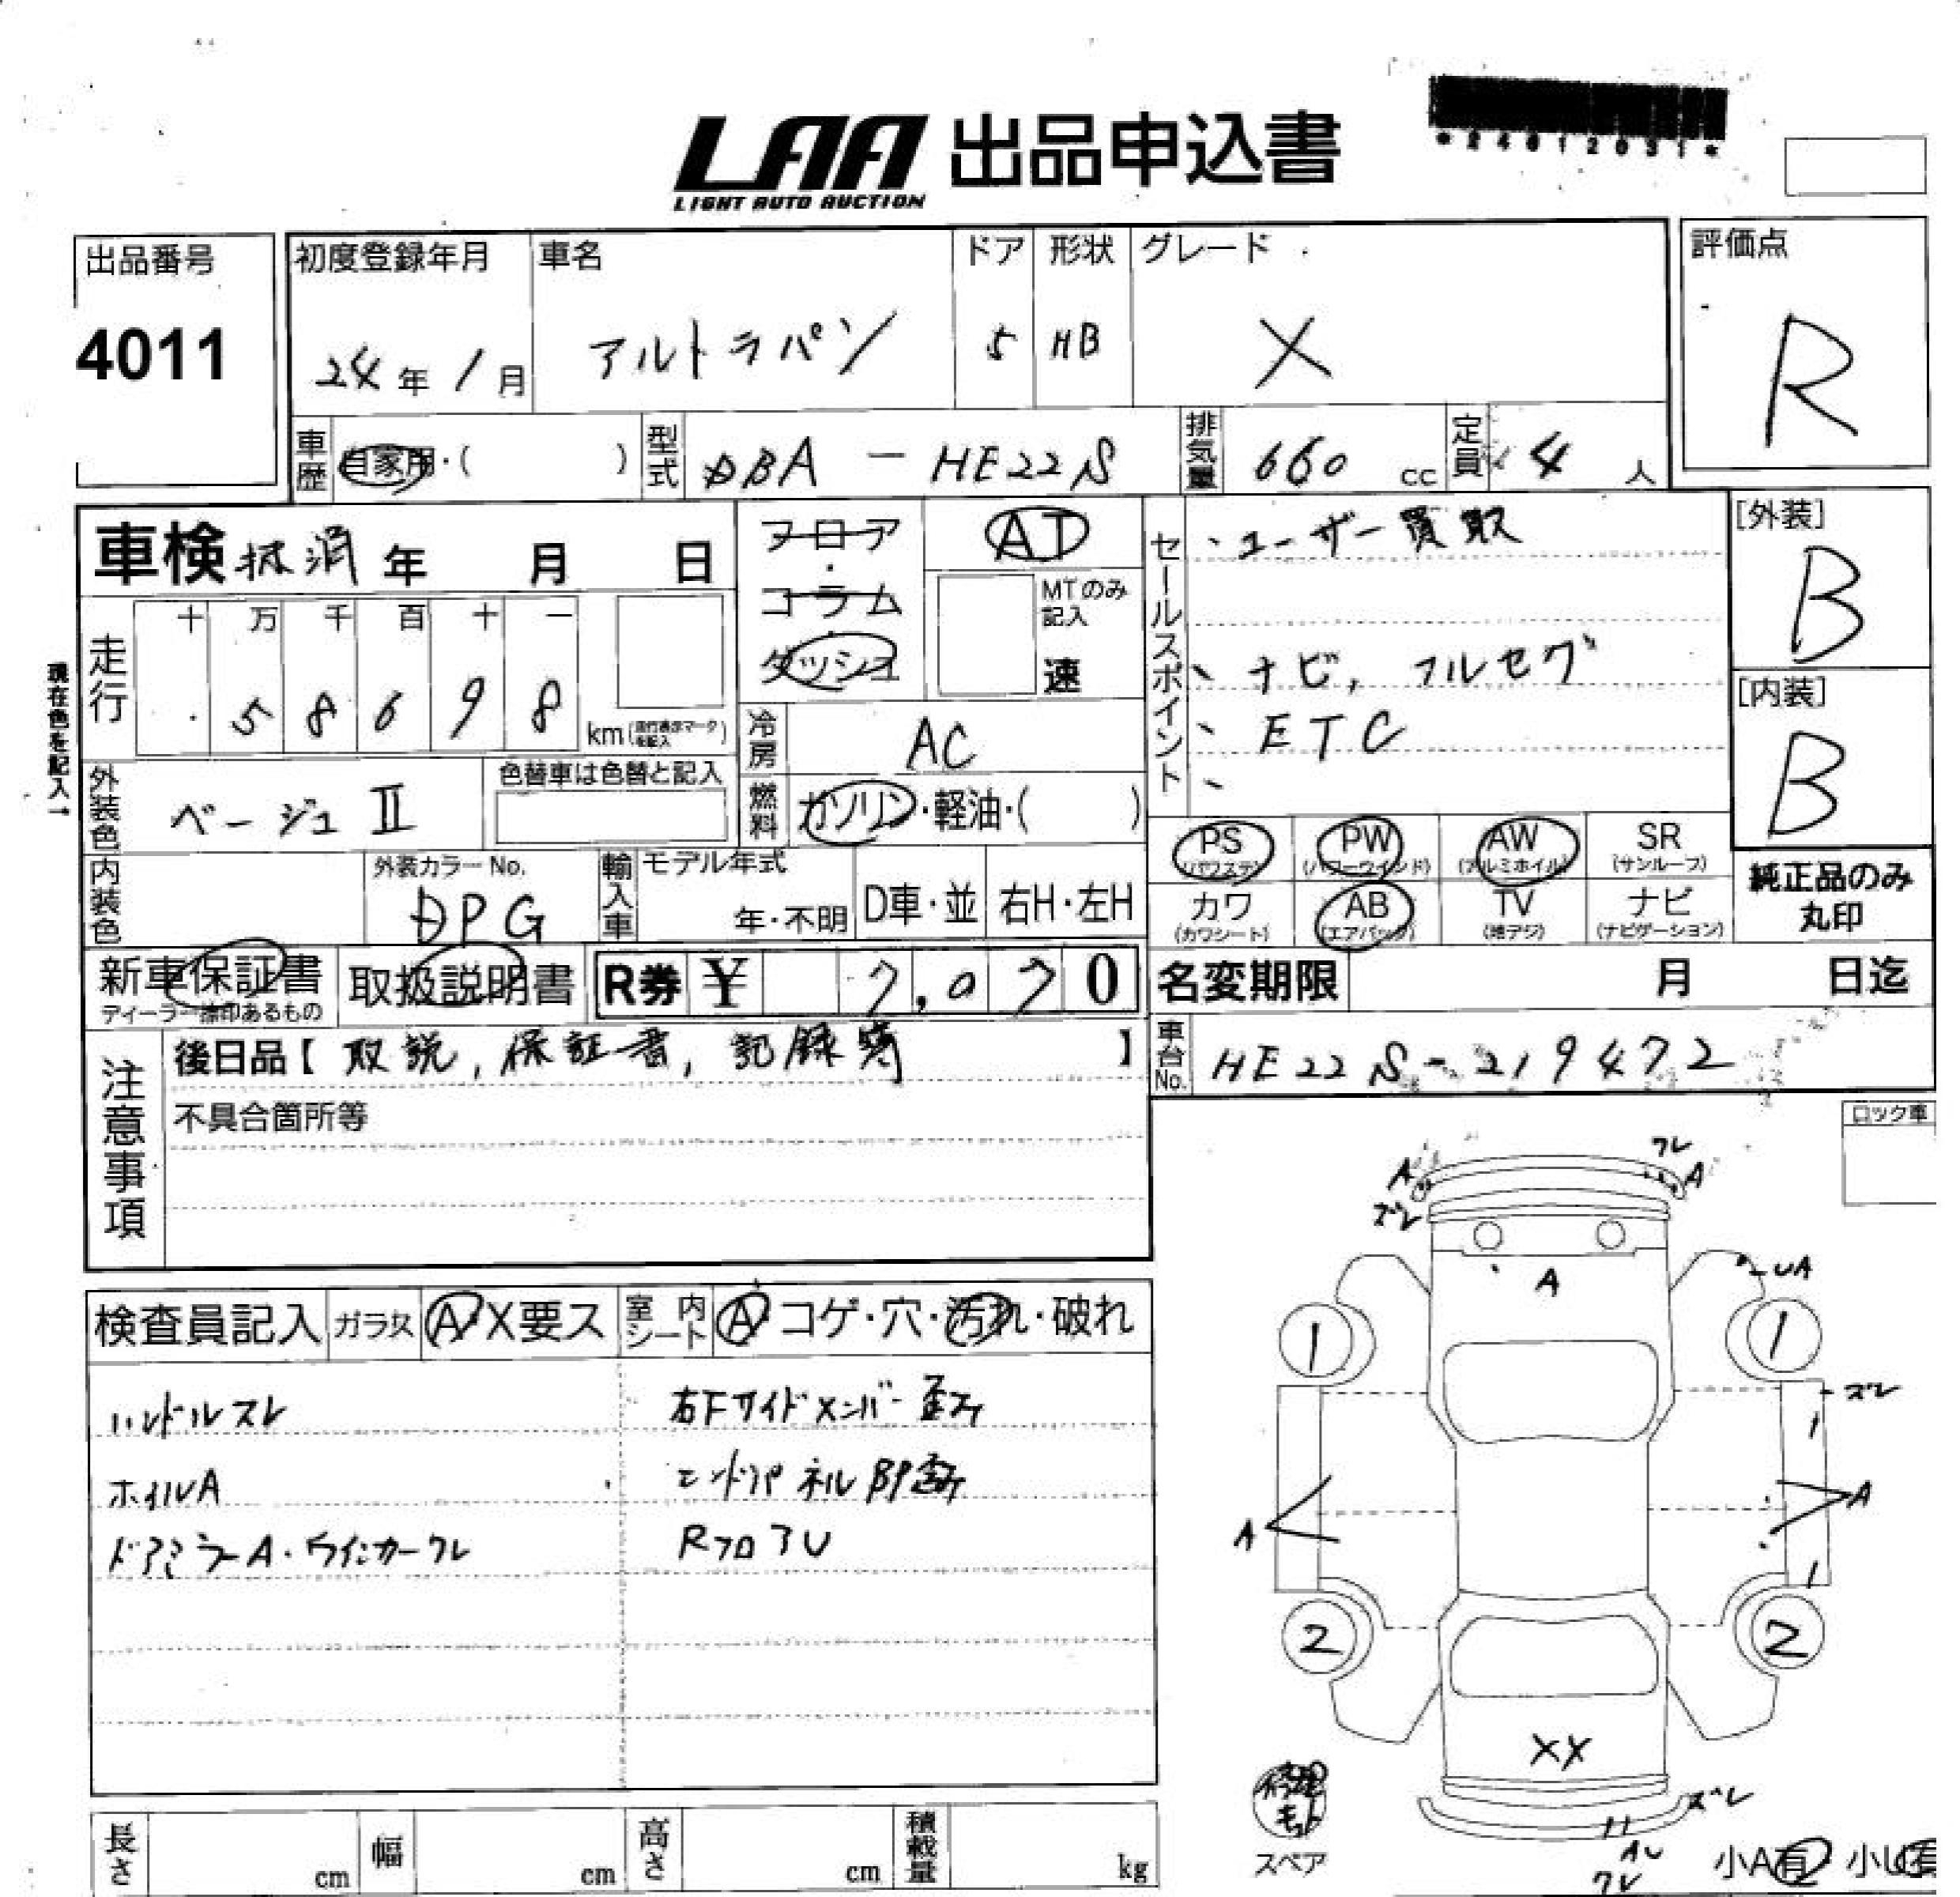 LAA 出品申込書
LIGHT AUTO AUCTION
*24012031*
出品番号
4011
初度登録年月
24年1月
車名
アルトラパン
ドア
5
形状
HB
グレード
X
評価点
R
車歴
自家用・( )
型式
DBA-HE22S
排気量
660 cc
定員
4人
車検 抹消 年 月 日
走行
十 万 千 百 十 一
5 8 6 9 8
km
現在色を記入→
フロア・コラム・ダッシュ
AT
MTのみ記入
速
冷房
AC
燃料
ガソリン・軽油・( )
セールスポイント
ユーザー買取
ナビ, フルセグ
ETC
[外装]
B
[内装]
B
外装色
ベージュII
色替車は色替と記入
内装色
外装カラーNo.
DPG
輸入車
モデル年式
年・不明
D車・並
右H・左H
PS
(パワステ)
PW
(パワーウインド)
AW
(アルミホイル)
SR
(サンルーフ)
カワ
(カワシート)
AB
(エアバック)
TV
(地デジ)
ナビ
(ナビゲーション)
純正品のみ
丸印
新車保証書
取扱説明書
R券 ¥ 7,070
名変期限 月 日迄
注意事項
後日品【 取説, 保証書, 記録簿 】
不具合箇所等
車台No.
HE22S-219472
ロック車
検査員記入
ガラス
A・X要ス
室内シート
A・コゲ・穴・汚れ・破れ
ハンドルスレ
右Fサイドメンバー歪み
ホイルA
エンドパネルBP歪み
ドアミラーA・ウインカーワレ
RフロアU
A
ワレ
A
ズレ
A
UA
1
1
ズレ
A
A
2
2
XX
ズレ
ワレ
修理キット
スペア
小A有
長さ cm
幅 cm
高さ cm
積載量 kg